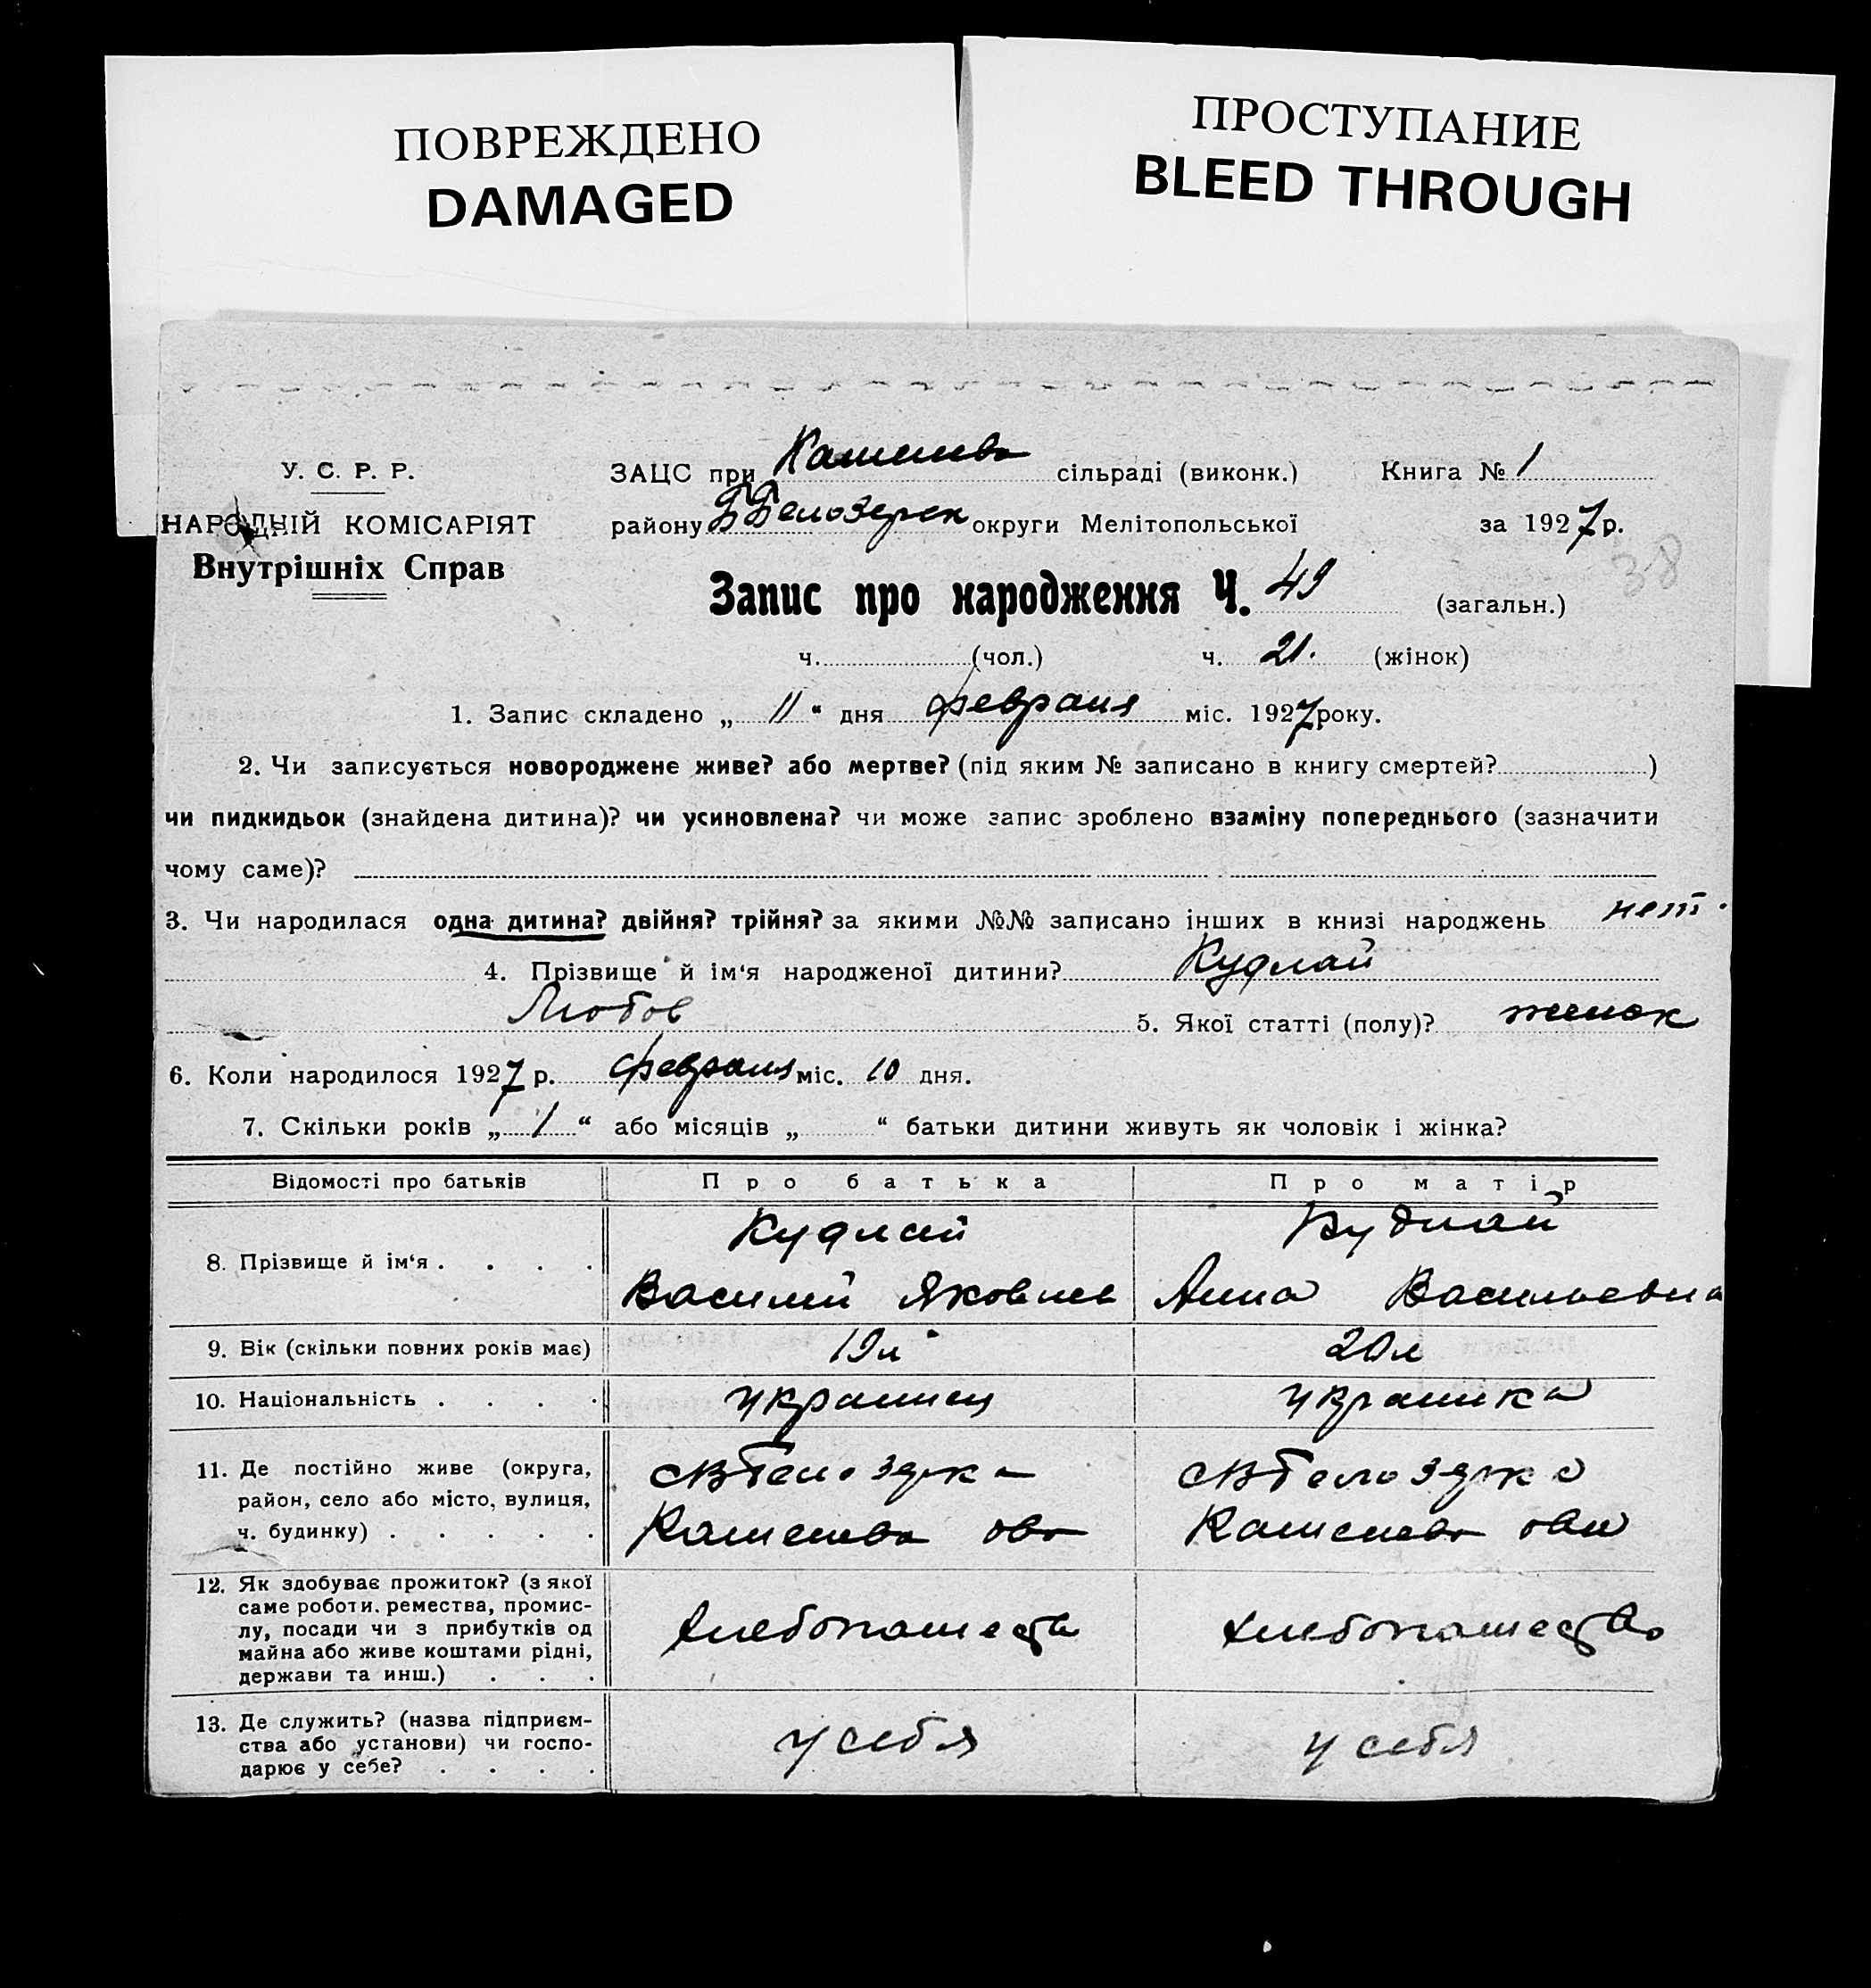 ПОВРЕЖДЕНО
DAMAGED
ПРОСТУПАНИЕ
BLEED THROUGH
У. С. Р. Р.
НАРОДНІЙ КОМІСАРІЯТ
Внутрішніх Справ
ЗАЦС при сільраді (виконк.) Книга № 1
району Белозерск округи Мелітопольської за 1927 р.
38
Запис про народження Ч. 49 (загальн.)
ч. (чол.) ч. 21. (жінок)
1. Запис складено „ 11 “ дня февраля міс. 1927 року.
2. Чи записується новороджене живе? або мертве? (під яким № записано в книгу смертей? )
чи пидкидьок (знайдена дитина)? чи усиновлена? чи може запис зроблено взаміну попереднього (зазначити
чому саме)?
3. Чи народилася одна дитина? двійня? трійня? за якими №№ записано інших в книзі народжень нет.
4. Прізвище й ім‘я народженої дитини? Кудлай
Любов 5. Якої статті (полу)? женск
6. Коли народилося 1927 р. февраля міс. 10 дня.
7. Скільки років „ 1 “ або місяців „ “ батьки дитини живуть як чоловік і жінка?
Відомості про батьків Про батька Про матір
8. Прізвище й ім‘я . . . . Кудлай Кудлай
Василий Яковлев Анна Васильевна
9. Вік (скільки повних років має) 19 л 20 л
10. Національність . . . . украинец украинка
11. Де постійно живе (округа,
район, село або місто, вулиця,
ч. будинку) . . . . .
12. Як здобуває прожиток? (з якої
саме роботи. ремества, промис-
лу, посади чи з прибутків од
майна або живе коштами рідні,
держави та инш.) . . .
хлебопашество хлебопашество
13. Де служить? (назва підприєм-
ства або установи) чи госпо-
дарює у себе? . . . .
у себя у себя